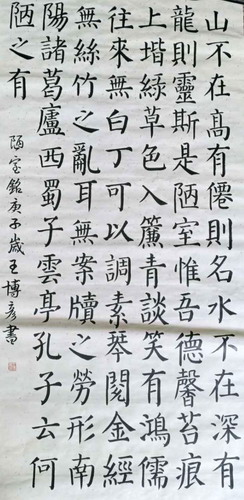 山不在高有僊則名水不在深有
龍則靈斯是陋室惟吾德馨苔痕
上堦緑草色入簾青談笑有鴻儒
往來無白丁可以調素琴閱金經
無絲竹之亂耳無案牘之勞形南
陽諸葛廬西蜀子雲亭孔子云何
陋之有
陋室銘庚子歲王博彥書